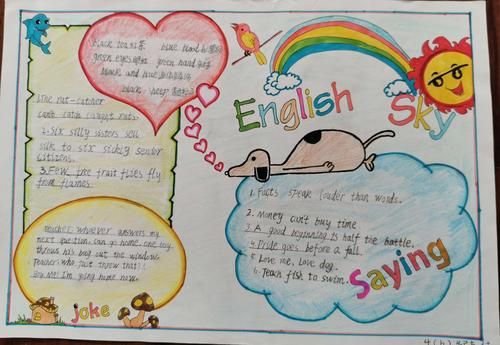 black tea 红茶 blue blood
green eyes green hand
black and blue
black sheep
English Sky
1.The rat-catcher
can't catch caught rats.
2.Six silly sisters sell
silk to six sickly senior
citizens.
3.Few free fruit flies fly
from flames.
Teacher: whoever answers my
next question, can go home. one boy
throws his bag out the window.
Teacher: who just threw that?!
Boy: Me! I'm going home now.
joke
1. Facts speak louder than words.
2. Money can't buy time
3. A good beginning is half the battle.
4. Pride goes before a fall.
5. Love me, love dog.
6. Teach fish to swim.
Saying